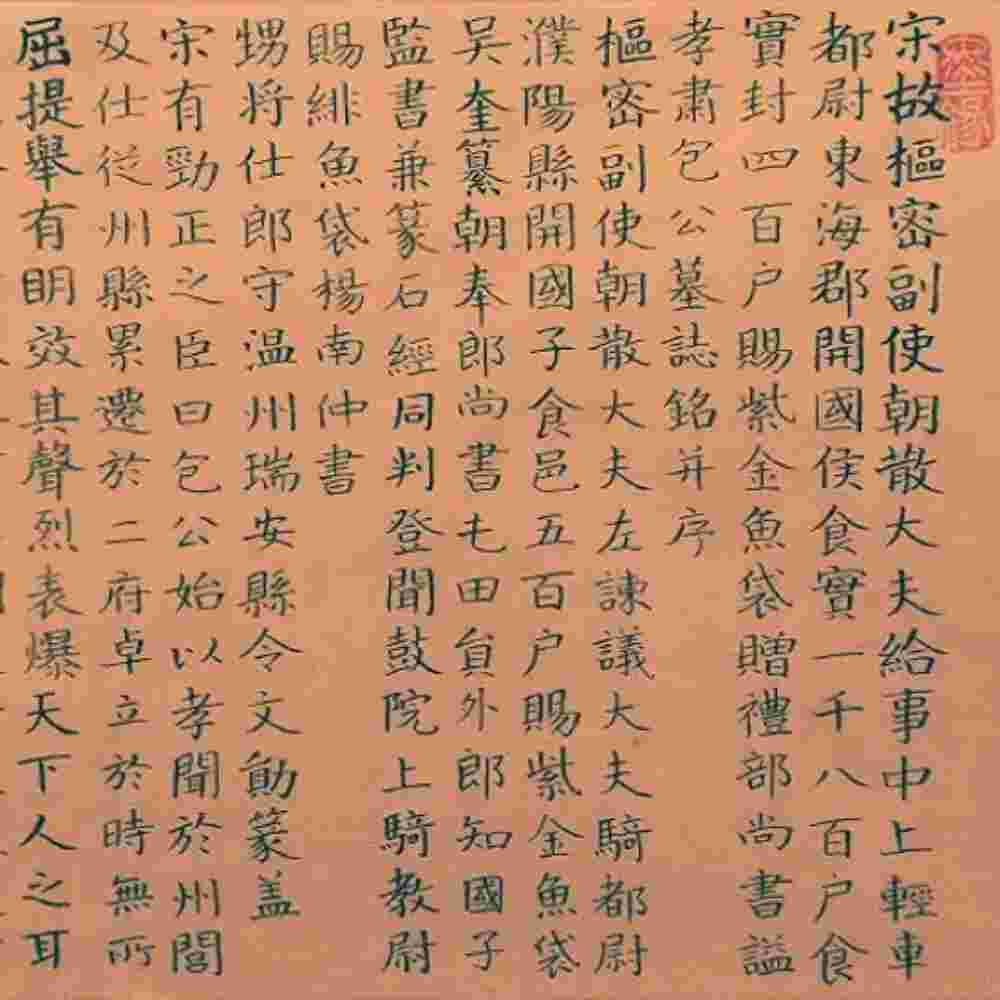 宋故樞密副使朝散大夫給事中上輕車
都尉東海郡開國侯食實一千八百户食
實封四百户賜紫金魚袋贈禮部尚書謚
孝肅包公墓誌銘并序
樞密副使朝散大夫左諫議大夫騎都尉
濮陽縣開國子食邑五百户賜紫金魚袋
吴奎纂朝奉郎尚書屯田貟外郎知國子
監書兼篆石經同判登聞鼓院上騎教尉
賜緋魚袋楊南仲書
甥将仕郎守温州瑞安縣令文勛篆盖
宋有勁正之臣曰包公始以孝聞於州閭
及仕從州縣累遷於二府卓立於時無所
屈提舉有明效其聲烈表爆天下人之耳